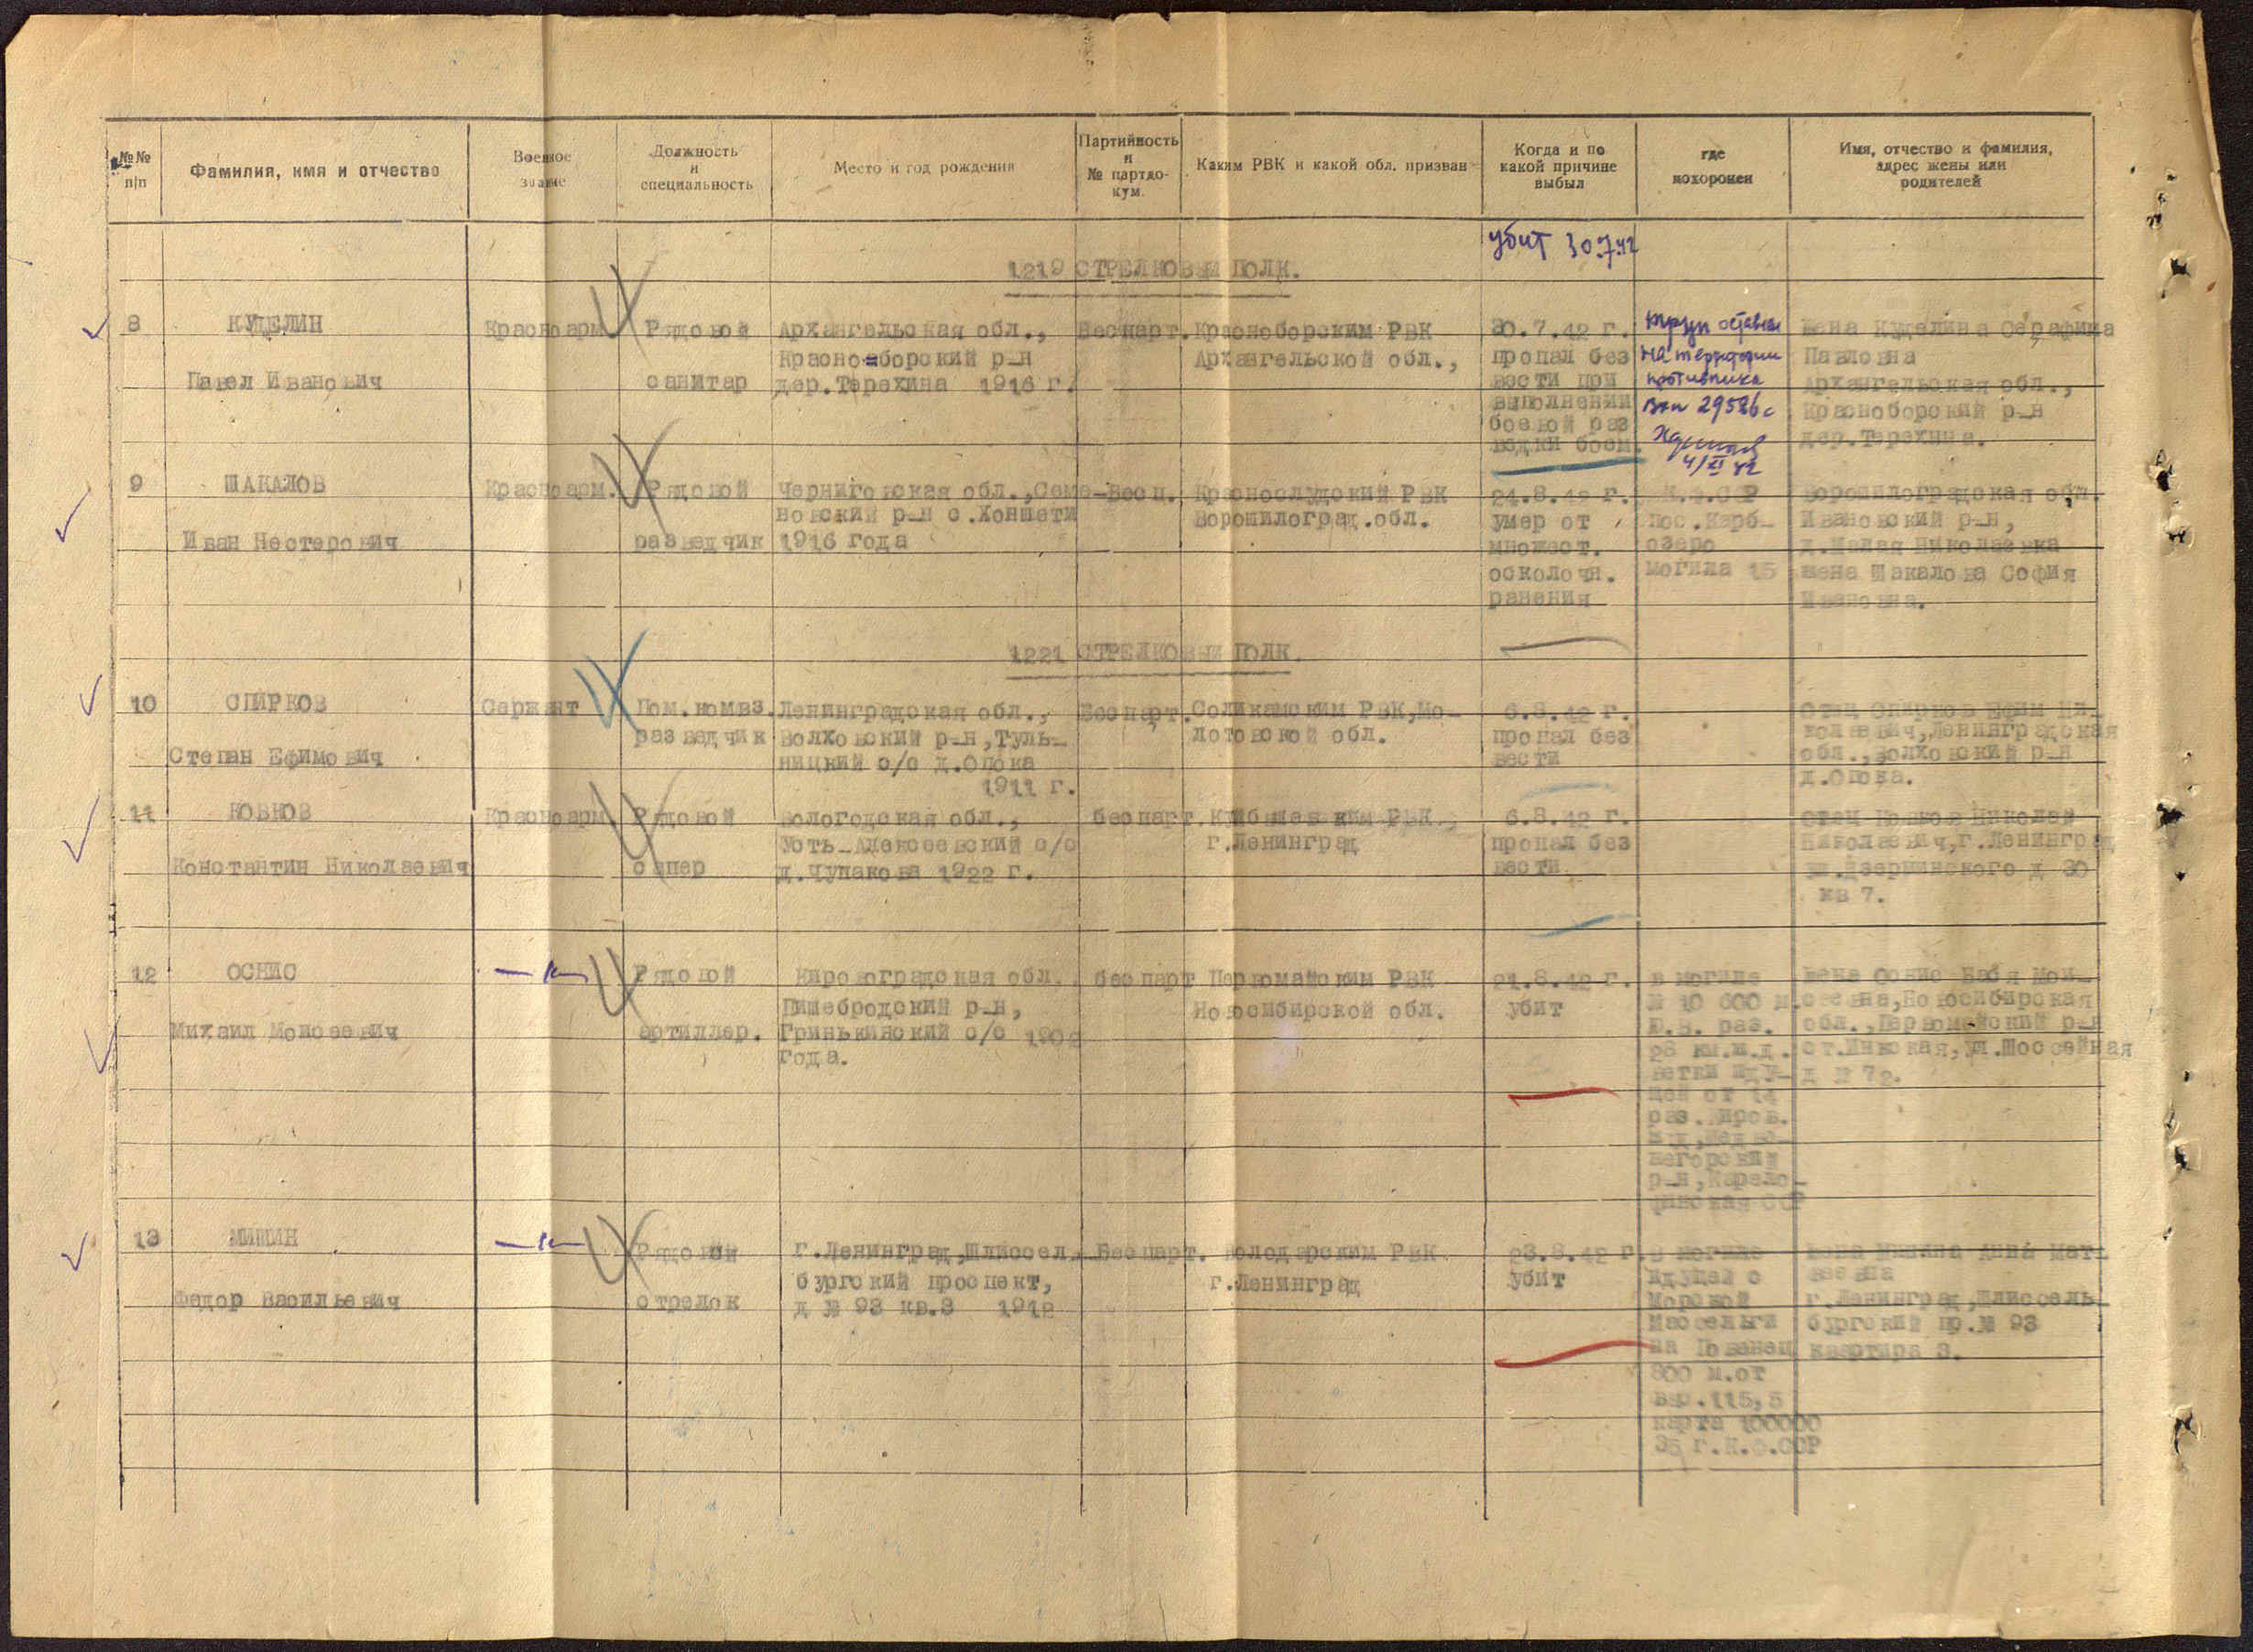 №№ п/п
Фамилия, имя и отчество
Военное звание
Должность и специальность
Место и год рождения
Партийность и № партдо- кум.
Каким РВК и какой обл. призван
Когда и по какой причине выбыл
где похоронен
Имя, отчество и фамилия, адрес жены или родителей
убит 30.7.42
1219 СТРЕЛКОВЫЙ ПОЛК.
8
КУДЕЛИН
Павел Иванович
Красноарм.
Рядовой
санитар
Архангельская обл.,
Красно=борский р-н
дер.Терехина 1916 г.
Беспарт.
Красноборским РВК
Архангельской обл.,
30.7.42 г.
пропал без
вести при
выполнении
боевой раз
ведки боем.
труп оставлен
на территории
противника
29586с
4/XI 42
жена Куделина Серафима
Павловна
Архангельская обл.,
Красноборский р-н
дер.Терехина.
9
ШАКАЛОВ
Иван Нестерович
Красноарм.
Рядовой
разведчик
Черниговская обл.,Семе-
новский р-н с.Хоншети
1916 года
Бесп.
Краснослудский РВК
Ворошилоград.обл.
24.8.42 г.
умер от
множест.
осколочн.
ранения
К.Ф.ССР
пос.Карб-
озеро
могила 15
Ворошилоградская обл.
Ивановский р-н,
д.Малая Николаевка
жена Шакалова София
Ивановна.
1221 СТРЕЛКОВЫЙ ПОЛК.
10
СПИРКОВ
Степан Ефимович
Сержант
Пом.комвз.
разведчик
Ленинградская обл.,
Волховский р-н,Туль-
ницкий с/с д.Опока
1911 г.
Беспарт.
Соликамским РВК,Мо-
лотовской обл.
6.8.42 г.
пропал без
вести
Отец Спирков Ефим Ни-
колаевич,Ленинградская
обл.,Волховский р-н
д.Опока.
11
КОВКОВ
Константин Николаевич
Красноарм
Рядовой
сапер
Вологодская обл.,
Усть-Алексеевский с/с
д.Чупакова 1922 г.
беспарт.
Куйбышевским РВК,
г.Ленинград
6.8.42 г.
пропал без
вести
Отец Ковков Николай
Николаевич,г.Ленинград
ул.Дзержинского д 30
кв 7.
12
ОСНИС
Михаил Моисеевич
—"—
Рядовой
артиллер.
Кировоградская обл.
Пишебродский р-н,
Гринькинский с/с 1902
года.
беспарт
Первомайским РВК
Новосибирской обл.
21.8.42 г.
убит
в могиле
№ 10 600 м.
Ю.В. раз.
28 км.ж.д.
ветки иду-
щей от 14
раз.Киров.
ж.д,Медве-
жегорский
р-н,Карело-
финская ССР
жена Оснис Бабя Мои-
сеевна,Новосибирская
обл.,Первомайский р-н
ст.Инская,ул.Шоссейная
д № 72.
13
МИШИН
Федор Васильевич
—"—
Рядовой
стрелок
г.Ленинград,Шлиссел-
бургский проспект,
д № 93 кв.3 1912
Беспарт.
Володарским РВК
г.Ленинград
23.8.42 г.
убит
В могиле
идущей с
Морской
Массельги
на Повенец
800 м.от
выс.115,5
карта 100000
35 г.К.Ф.ССР
жена Мишина Анна Мат-
веевна
г.Ленинград,Шлиссель-
бургский пр.№ 93
квартира 3.